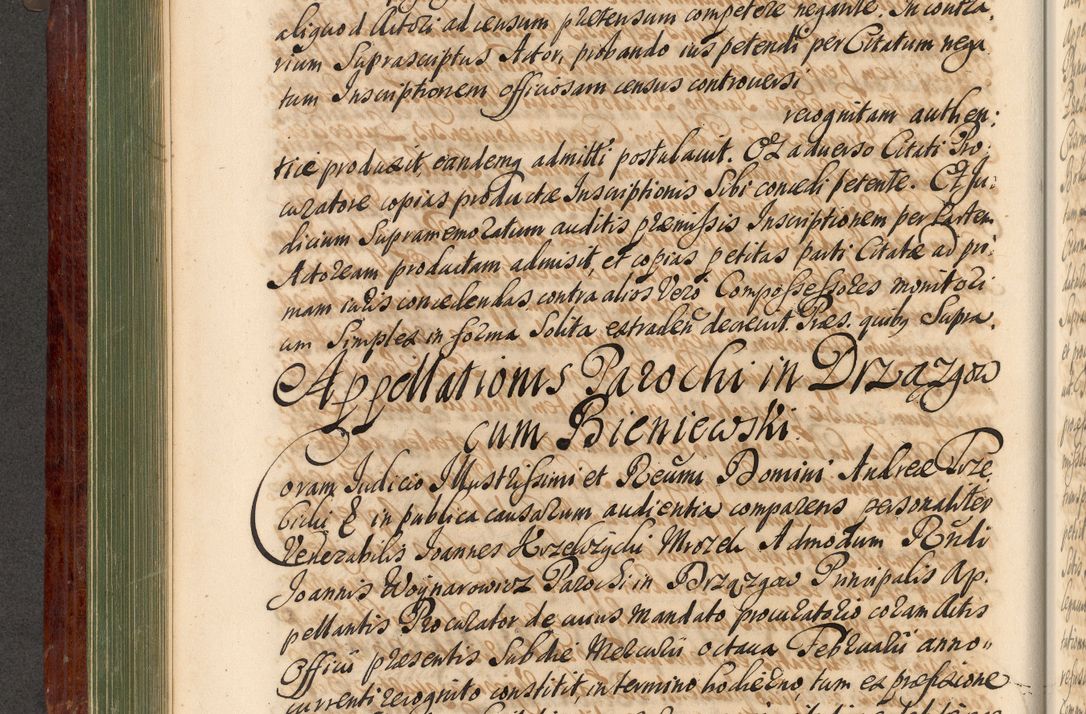 aliquod Actori ad censum prætensum competere negante. In contra,
rium Suprascriptus Actor, probando ius petendi per Citatum nega
tum Inscriptionem officiosam census controversi
recognitam authen:
tice produxit, eandemq admitti postulavit. Et adverso Citati Pro,
curatore copias productæ Inscriptionis Sibi concedi petente. Et Ju:
dicium Supramemoratum auditis præmissis Inscriptionem per Partem
Actoream productam admisit, et copias petitas parti Citatæ ad pri,
mam curis concedendas, contra alios Verò Compossessores monitori
um Simplex in forma Solita extradeñ decrevit. Præs. quibq Supra.
Appellationis Parochi in Drzązgow
cum Bieniewski.
Coram Judicio Illustrissimi et Reumi Domini Andreæ Trze
bicki & in publica causarum audientia comparens personaliter
Venerabilis Joannes Mrozek Admodum Rñdi
Joannis Woÿnarowicz Parochi in Drzązgow Principalis Ap.
pellantis Procurator de cuius mandato procuratorio coram Actis
Officii præsentis Sub die Mercurii octava Februarii anno
currenti recognito constitit, in termino hodierno tum ex præfixione